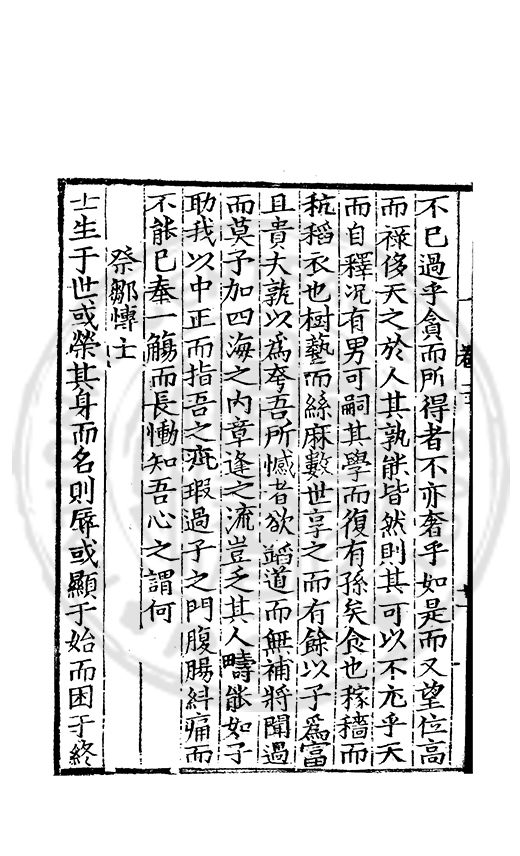 不已過乎貪而所得者不亦奢乎如是而又望位高
而祿侈天之於人其孰能皆然則其可以不尤乎天
而自釋况有男可嗣其學而復有孫矣食也稼穡而
秔稻衣也樹藝而絲麻數世享之而有餘以子爲富
且貴大孰以爲夸吾所憾者欲蹈道而無補將聞過
而莫予加四海之内章逢之流豈乏其人疇能如子
助我以中正而指吾之疵瑕過子之門腹腸糾痛而
不能已奉一觴而長慟知吾心之謂何
祭鄒愽士
士生于世或榮其身而名則辱或顯于始而困于終